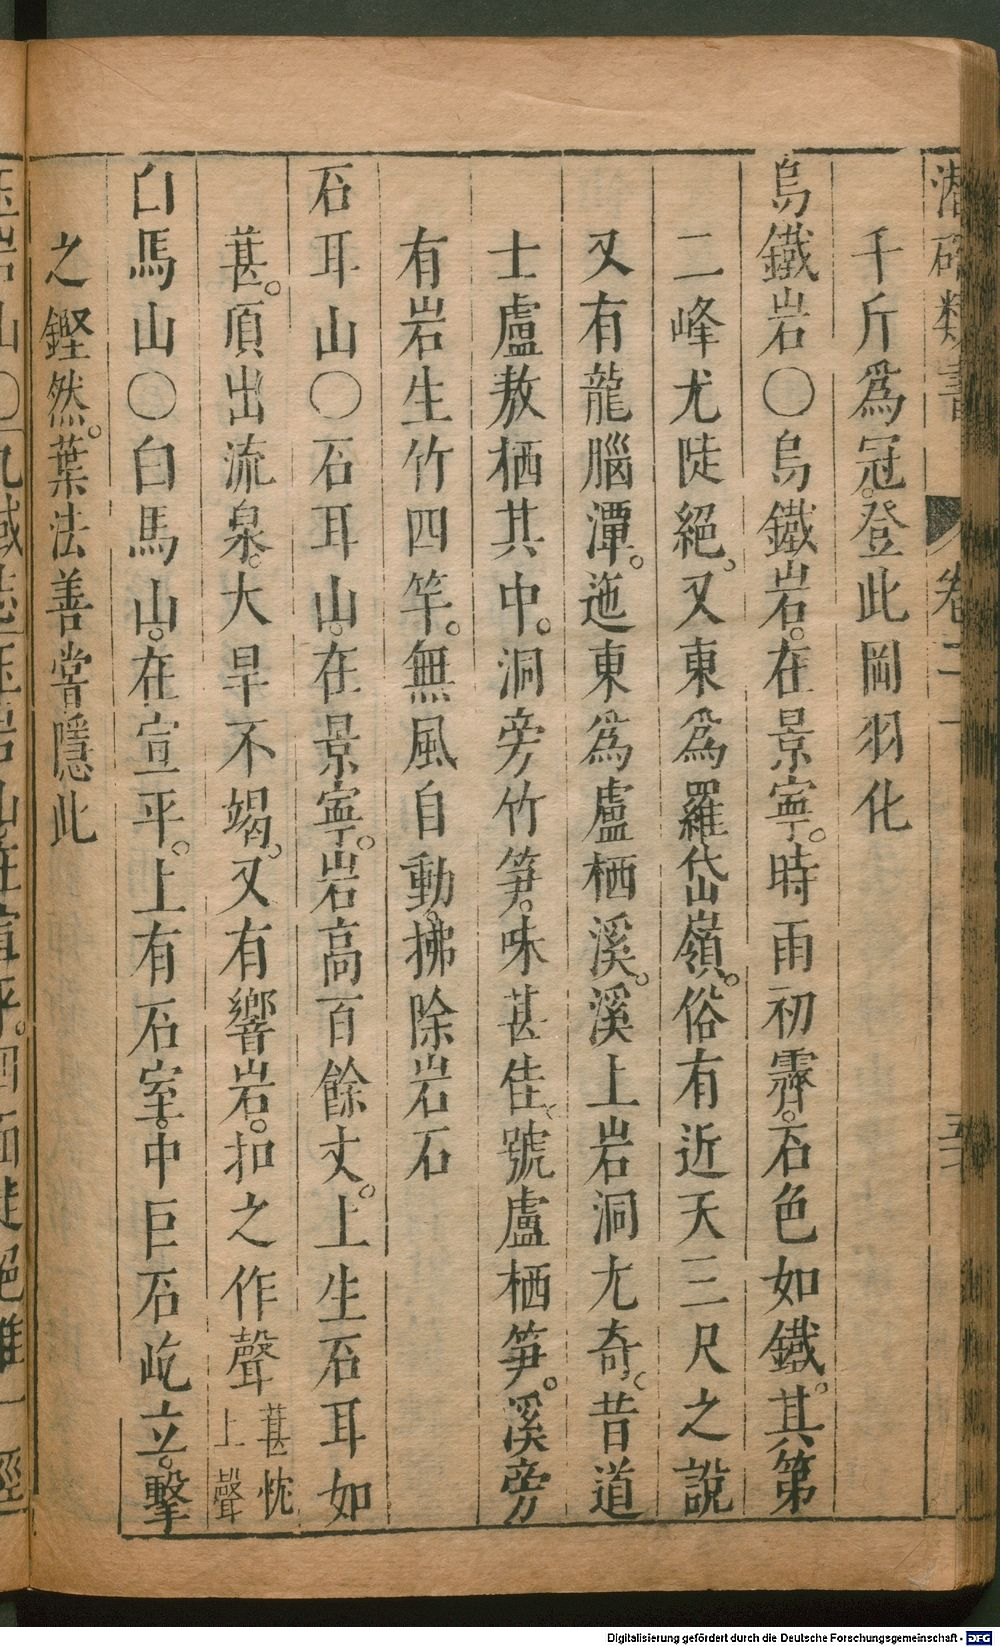 潛確類書 卷二十 五
千斤爲冠。登此岡羽化
烏鐵岩〇烏鐵岩。在景寧。時雨初霽。石色如鐵。其第
二峰尤陡絕。又東爲羅岱嶺。俗有近天三尺之說
又有龍腦潭。迤東爲盧栖溪。溪上岩洞尤奇、昔道
士盧敖栖其中。洞旁竹笋。味甚佳、號盧栖笋。溪旁
有岩生竹四竿。無風自動。拂除岩石
石耳山〇石耳山。在景寧。岩高百餘丈。上生石耳如
葚。頂出流泉。大旱不竭。又有響岩。扣之作聲葚忱上聲
白馬山〇白馬山。在宣平。上有石室。中巨石屹立。擊
之鏗然。葉法善嘗隱此
玉岩山〇九域志玉岩山在宣平。四面陡絕雖一徑
Digitalisierung gefördert durch die Deutsche Forschungsgemeinschaft - DFG